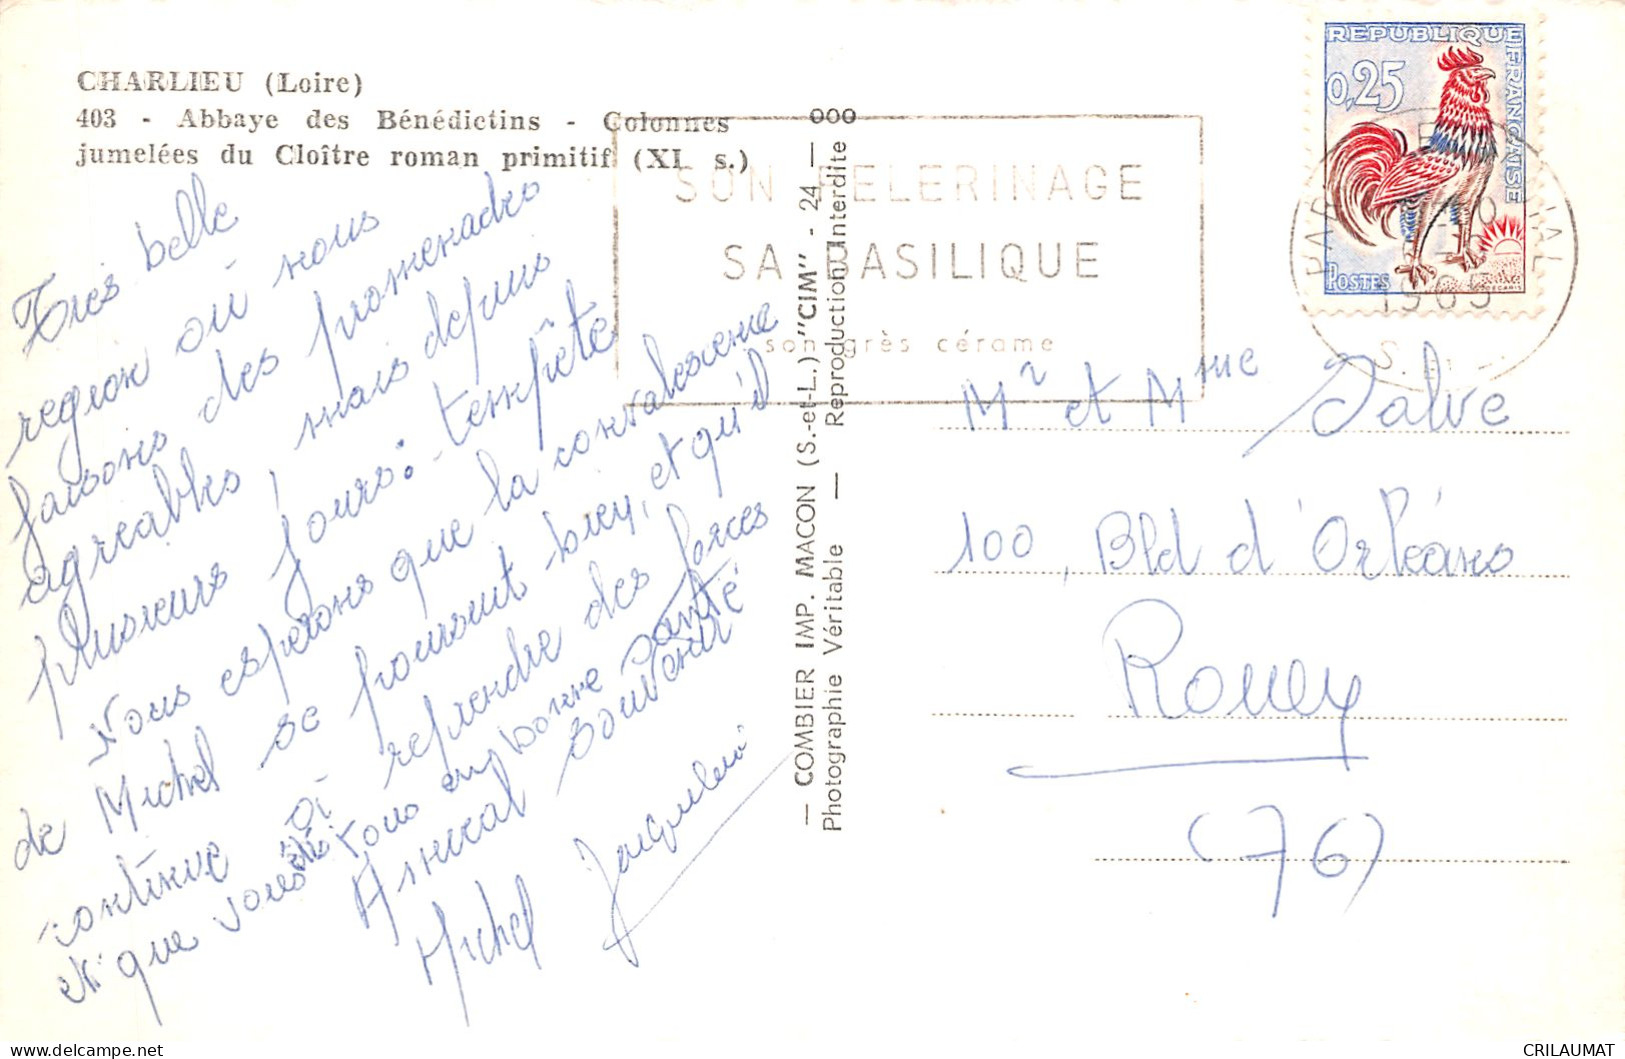 CHARLIEU (Loire)
403 - Abbaye des Bénédictins - Colonnes
jumelées du Cloître roman primitif (XI s.)
Très belle
région où nous
faisons des promenades
agréables, mais depuis
plusieurs jours : tempête
Nous espérons que la convalescence
de Michel se poursuit bien, et qu'il
continue à reprendre des forces
et que vous êtes tous en bonne santé
Amical souvenir
Michel Jacqueline
— COMBIER IMP. MACON (S.-et-L.) "CIM" - 24 — 000
Photographie Véritable — Reproduction Interdite
SON PELERINAGE
SA BASILIQUE
son grès cérame
REPUBLIQUE FRANÇAISE
0,25
POSTES
PARAY IAL
1965
S.
Mr et Mme Salve
100, Bld d'Orléans
Rouen
(76)
delcampe.net
CRILAUMAT